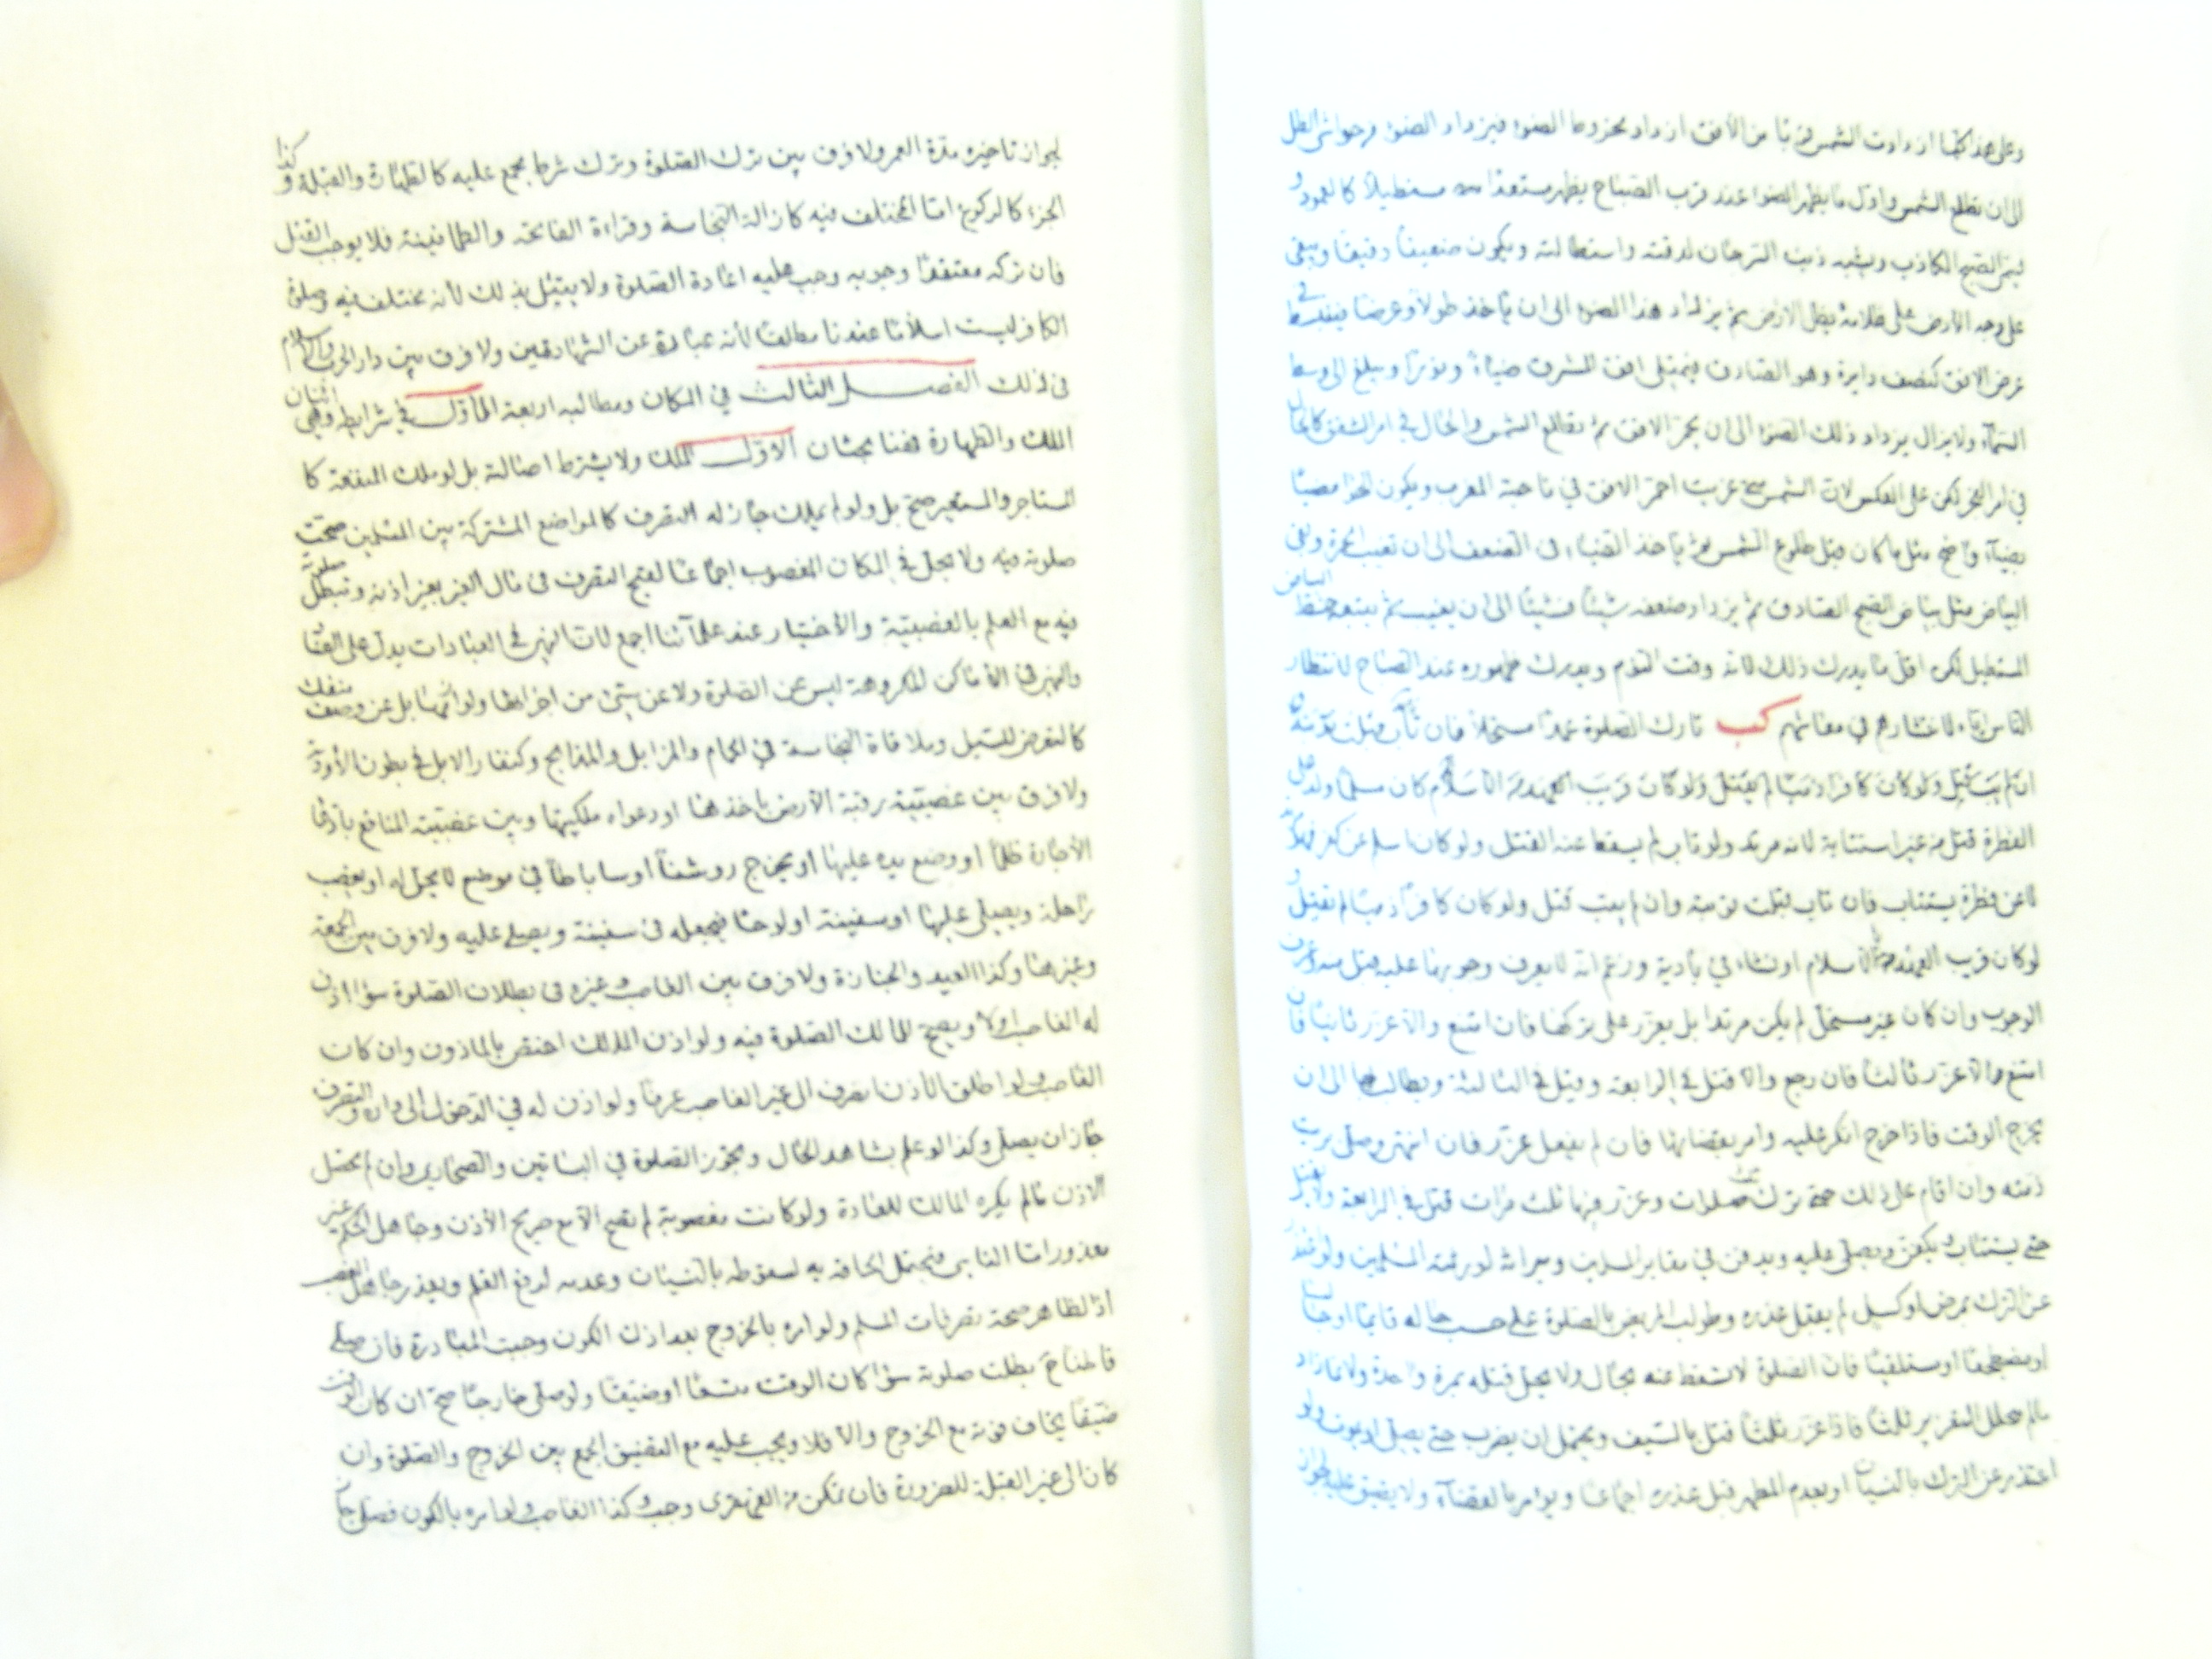 وعلى هذا كلما ازدادت الشمس قربا من الأفق ازداد مخروط الضوء فيزداد الضوء في حواشي الظل
الى ان تطلع الشمس واول ما يظهر الضوء عند قرب الصباح يظهر مستدقا مستطيلا كالعمود و
يسمى الصبح الكاذب ويشبه ذنب السرحان لدقته واستطالته ويكون ضعيفا دقيقا ويبقى
على وجه الارض على ظلامه بظل الارض ثم يزداد هذا الضوء الى ان يأخذ طولا وعرضا فينبسط في
عرض الافق كنصف دايرة وهو الصادق فيمتلى افق المشرق ضياء ونورا ويبلغ الى وسط
السماء ولا يزال يزداد ذلك الضوء الى ان يحمر الافق ثم تطالع الشمس والحال في امر الشفق كالحال
في امر الفجر لكن على العكس لان الشمس متى غربت احمر الافق في ناحية المغرب ويكون الجو مضيئا
بضياء واضح مثل ما كان قبل طلوع الشمس ثم يأخذ الضياء في الضعف الى ان تغيب الحمرة ويبقى
البياض مثل بياض الصبح الصادق ثم يزداد ضعفه شيئا فشيئا الى ان يغيب ثم يتبعه البياض
المستطيل لكنه اقل ما يدرك ذلك لانه وقت النوم ويدرك ظهوره عند الصباح لانتظار
الناس اياه لانتشارهم في معاشهم كب تارك الصلوة عمدا مستحلا فان تاب قبلت توبته و
ان لم يتب قتل ولو كان كافرا ذميا لم يقتل ولو كان قريب العهد من الاسلام كان مسلما ولد على
الفطرة قتل من غير استتابة لانه مرتد ولو تاب لم يسقط عنه القتل ولو كان اسلم عن كفر فهو مرتد
لا عن فطرة يستتاب فان تاب قبلت توبته وان لم يتب قتل ولو كان كافرا ذميا لم يقتل و
لو كان قريب العهد بالاسلام او نشاء في بادية وزعم انه لا يعرف وجوبها عليه قبل منه وعرف
الوجوب وان كان غير مستحل لم يكن مرتدا بل يعزر على تركها فان امتنع والا عزر ثانيا فان
امتنع والا عزر ثالثا فان رجع والا قتل في الرابعة وقيل في الثالثة ويطالب بها الى ان
يخرج الوقت فاذا خرج انكر عليه وامر بقضائها فان لم يفعل عزر فان انتهى وصلى برئت
ذمته وان اقام على ذلك حتى ترك صلوات وعزر فيها ثلث مرات قتل في الرابعة ولا يقتل
حتى يستتاب ويكفن ويصلى عليه ويدفن في مقابر المسلمين وميراثه لورثته المسلمين ولو اعتذر
عن الترك بمرض او كسل لم يقبل عذره وطولب المريض بالصلوة على حسب حاله قايما او جالسا
او مضطجعا او مستلقيا فان الصلوة لا تسقط عنه بحال ولا يحل قتله بمرة واحدة ولا بما زاد
ما لم يتخلل التعزير ثلثا فاذا عزر ثلثا قتل بالسيف ويحتمل ان يضرب حتى يصلى او يموت ولو
اعتذر عن الترك بالنسيان او بعدم المطهر قبل عذره اجماعا ويؤمر بالقضاء ولا يضيق عليه لجواز
لجواز تاخيره مدة العمر ولا فرق بين ترك الصلوة وترك شرط مجمع عليه كالطهارة والقبلة وكذا
الجزء كالركوع اما المختلف فيه كازالة النجاسة وقراءة الفاتحة والطمانينة فلا يوجب القتل
فان تركه معتقدا وجوبه وجب عليه اعادة الصلوة ولا يقتل بذلك لأنه مختلف فيه وصلوة
الكافر ليست اسلاما عندنا مطلقا لأنه عبارة عن الشهادتين ولا فرق بين دار الحرب والاسلام
في ذلك الفصل الثالث في المكان ومطالبه اربعة الأول في شرايطه وهي اثنان
الملك والطهارة فهنا بحثان الأول الملك ولا يشترط اصالته بل لو ملك المنفعة كا
المستاجر والمستعير صح بل ولو لم يملك جاز له التصرف كالمواضع المشتركة بين المسلمين صحت
صلوته فيه ولا يحل في المكان المغصوب اجماعا لقبح التصرف في مال الغير بغير اذنه وتبطل صلوته
فيه مع العلم بالغصبية والأختيار عند علمآئنا اجمع لان النهى في العبادات يدل على الفساد
والنهى في الأماكن المكروهة ليس عن الصلوة ولا عن شئ من اجزائها ولوازمها بل عن وصف منفك
كالتعرض للسيل وملاقاة النجاسة في الحمام والمزابل والمذابح وكنفار الابل في بطون الأودية
ولا فرق بين غصبية رقبة الأرض باخذها او دعواه ملكيتها وبين غصبية المنافع بادعاء
الأجارة ظلما او وضع يده عليها او يخرج روشنا او ساباطا في موضع لا يحل له او يغصب
راحلة ويصلى عليها او سفينة او لوحا فيجعله في سفينة ويصلى عليه ولا فرق بين الجمعة
وغيرها وكذا العيد والجنازة ولا فرق بين الغاصب وغيره في بطلان الصلوة سواء اذن
له الغاصب اولا ويصح للمالك الصلوة فيه ولو اذن المالك اختص بالماذون وان كان
الغاصب ولو اطلق الأذن انصرف الى غير الغاصب عرفا ولو اذن له في الدخول الى داره والتصرف
جاز ان يصلى وكذا لو علم بشاهد الحال ويجوز الصلوة في البساتين والصحارى وان لم يحصل
الاذن ما لم يكره المالك للعادة ولو كانت مغصوبة لم تصح الا مع صريح الأذن وجاهل الحكم غير
معذور اما الناسى فيحتمل الحاقه به لسقوطه بالنسيان وعدمه لرفع القلم ويعذر جاهل الغصب
اذ الظاهر صحة تصرفات المسلم ولو امره بالخروج بعد اذن الكون وجبت المبادرة فان صلى
بطلت صلوته سواء كان الوقت متسعا او ضيقا ولو صلى خارجا صح ان كان الوقت
ضيقا يخاف فوته مع الخروج والا فلا ويجب عليه مع التضيق الجمع بين الخروج والصلوة وان
كان الى غير القبلة للضرورة فان تمكن من القهقرى وجب وكذا الغاصب ولو امره بالكون فصلى